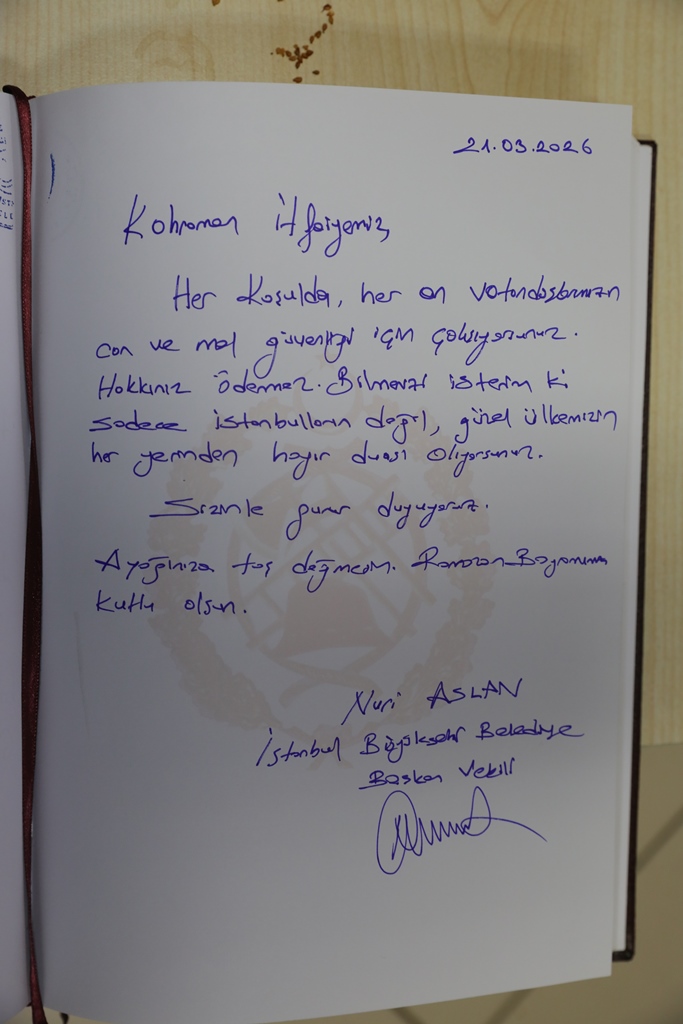 21.03.2026
Kahraman İtfaiyemiz,
Her Koşulda, her an vatandaşlarımızın
can ve mal güvenliği için çalışıyorsunuz.
Hakkınız ödenmez. Bilmenizi isterim ki
sadece istanbulların değil, güzel ülkemizin
her yerinden hayır duası alıyorsunuz.
Sizinle gurur duyuyoruz.
Ayağınıza taş değmesin. Ramazan Bayramınız
kutlu olsun.
Nuri ASLAN
İstanbul Büyükşehir Belediye
Başkan Vekili